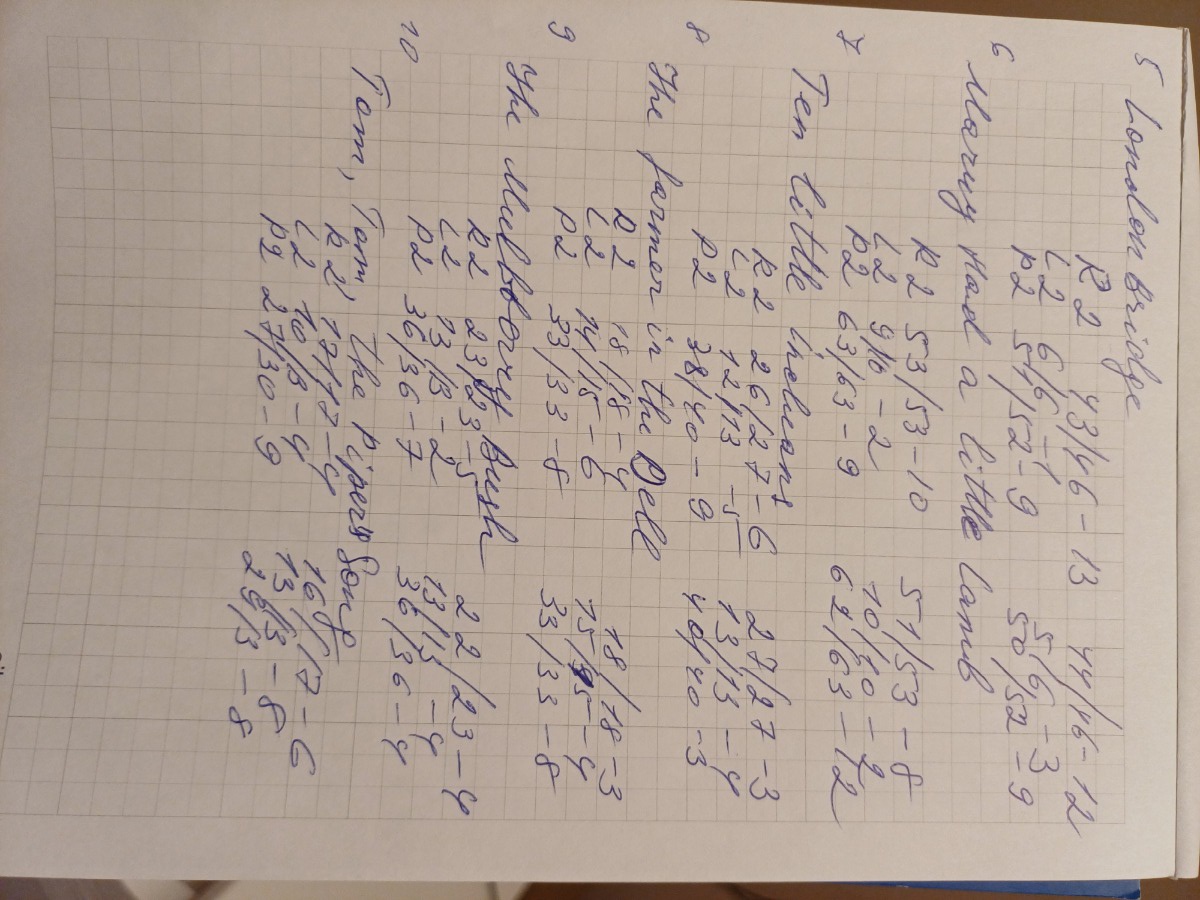 5 London Bridge
R2 43/46 - 13 44/46 - 12
L2 6/6 - 1 5/6 - 3
P2 51/52 - 9 50/52 - 9
6 Mary Had a little lamb
R2 53/53 - 10 51/53 - 8
L2 9/10 - 2 10/10 - 2
P2 63/63 - 9 62/63 - 12
7 Ten little indians
R2 26/27 - 6 27/27 - 3
L2 12/13 - 5 13/13 - 4
P2 38/40 - 9 40/40 - 3
8 The farmer in the Dell
R2 18/18 - 4 18/18 - 3
L2 14/15 - 6 15/15 - 4
P2 33/33 - 8 33/33 - 8
9 The Mulbbery Bush
R2 23/23 - 5 22/23 - 4
L2 13/13 - 2 13/13 - 4
P2 36/36 - 7 36/36 - 4
10 Tom, Tom, the pipers Song
R2 17/17 - 4 16/17 - 6
L2 10/13 - 4 13/13 - 8
P2 27/30 - 9 29/3 - 8